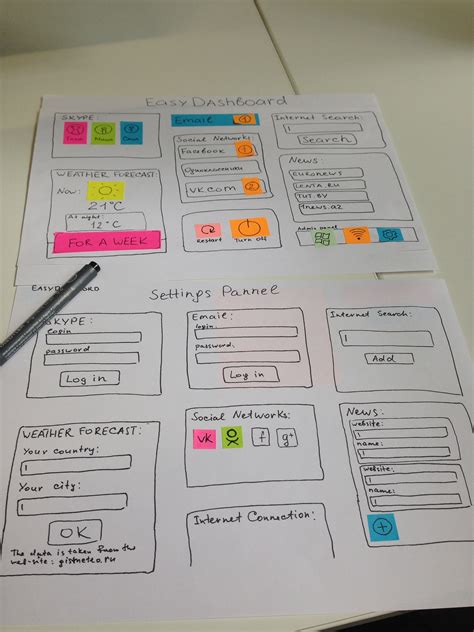 Easy DASHBOARD
SKYPE:
Mama
WEATHER FORECAST:
Now:
21°C
At night:
12°C
FOR A WEEK
Email
Social Networks:
Facebook
Одноклассники
VK.com
Restart
Turn off
Internet Search:
Search
News:
EURONEWS
LENTA.RU
TUT.BY
1news.az
Admin panel
Settings Pannel
SKYPE:
Login
password
Log in
Email:
login
password:
Log in
Internet Search:
Add
WEATHER FORECAST:
Your country:
Your city:
OK
The data is taken from the
web-site: gismeteo.ru
Social Networks:
VK
f
g+
Internet Connection:
News:
website:
name:
website:
name: